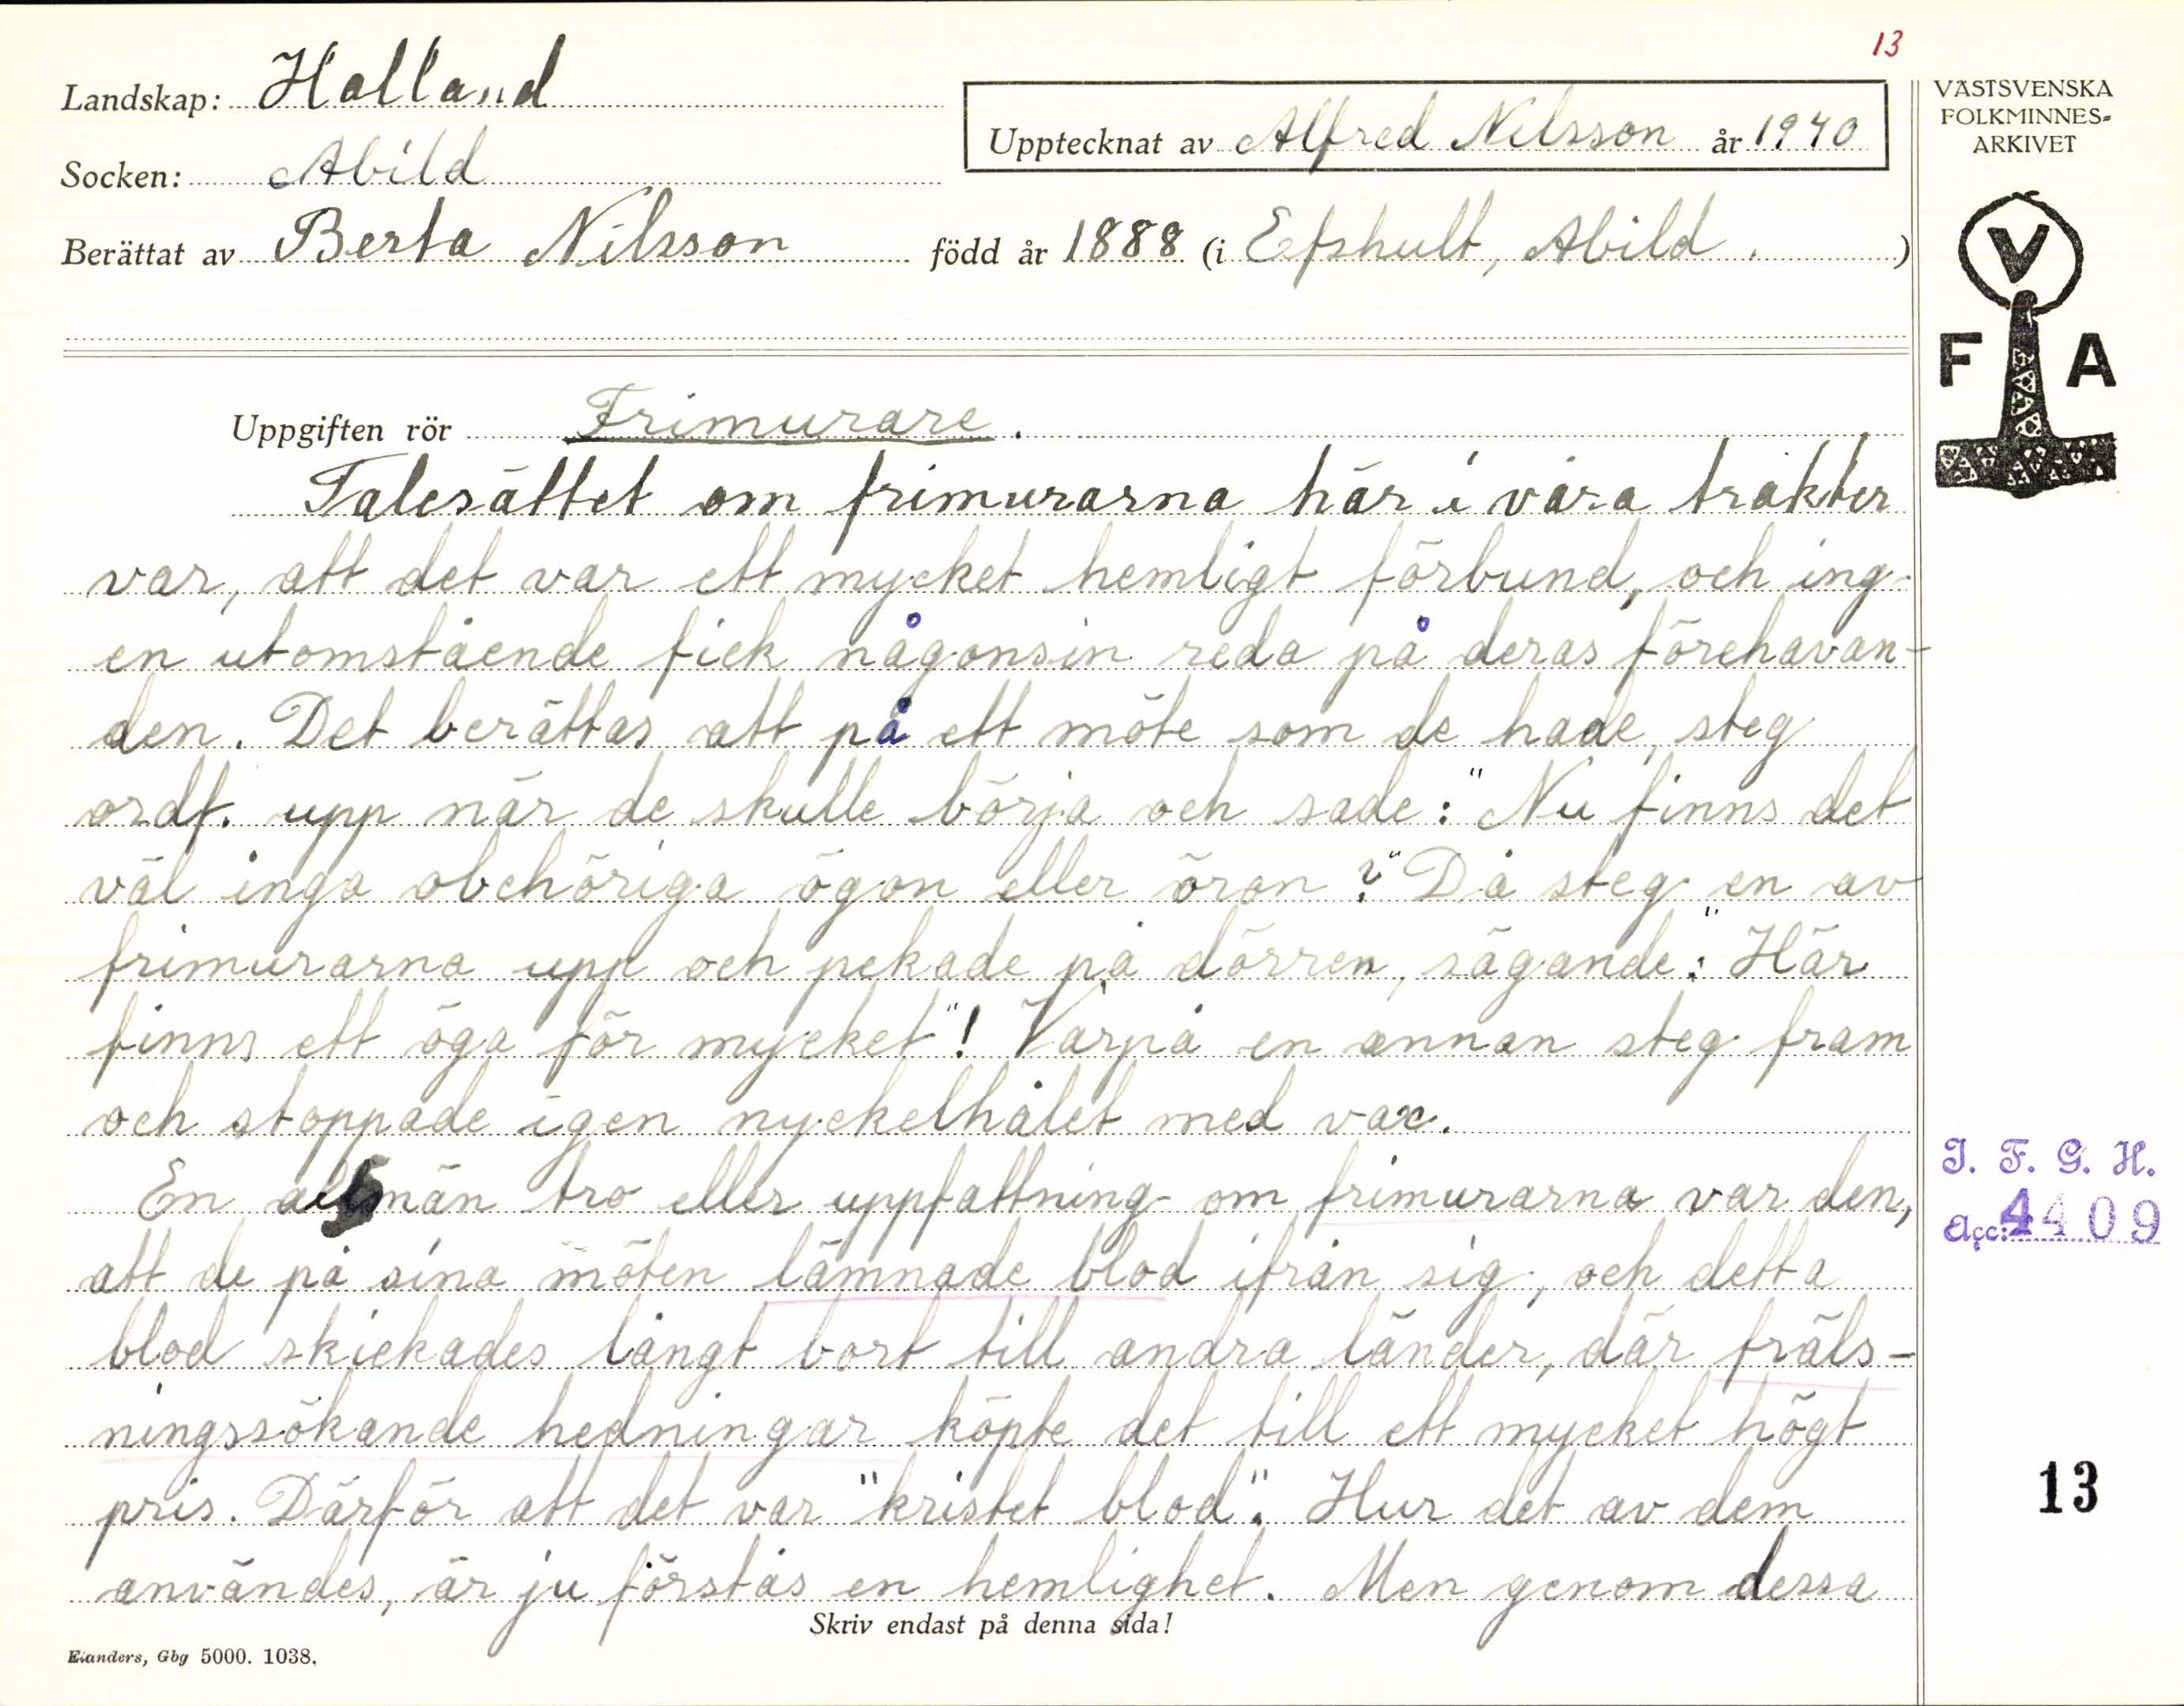 13
Landskap: Halland
Upptecknat av Alfred Nilsson år 1940
Socken: Abild
Berättat av Berta Nilsson född år 1888 (i Efshult, Abild.)
VÄSTSVENSKA
FOLKMINNES=
ARKIVET
V
F A
Uppgiften rör Frimurare.
Talesättet om frimurarna här i våra trakter
var, att det var ett mycket hemligt förbund, och ing-
en utomstående fick någonsin reda på deras förehavan-
den. Det berättas att på ett möte som de hade, steg
ordf. upp när de skulle börja och sade: "Nu finns det
väl inga obehöriga ögon eller öron?" Då steg en av
frimurarna upp och pekade på dörren, sägande: "Här
finns ett öga för mycket"! Varpå en annan steg fram
och stoppade igen nyckelhålet med vax.
En allmän tro eller uppfattning om frimurarna var den,
att de på sina möten lämnade blod ifrån sig, och detta
blod skickades långt bort till andra länder, där fräls-
ningssökande hedningar köpte det till ett mycket högt
pris. Därför att det var "kristet blod". Hur det av dem
användes, är ju förstås en hemlighet. Men genom dessa
I. F. G. H.
Acc: 4409
13
Skriv endast på denna sida!
Elanders, Gbg 5000. 1038.